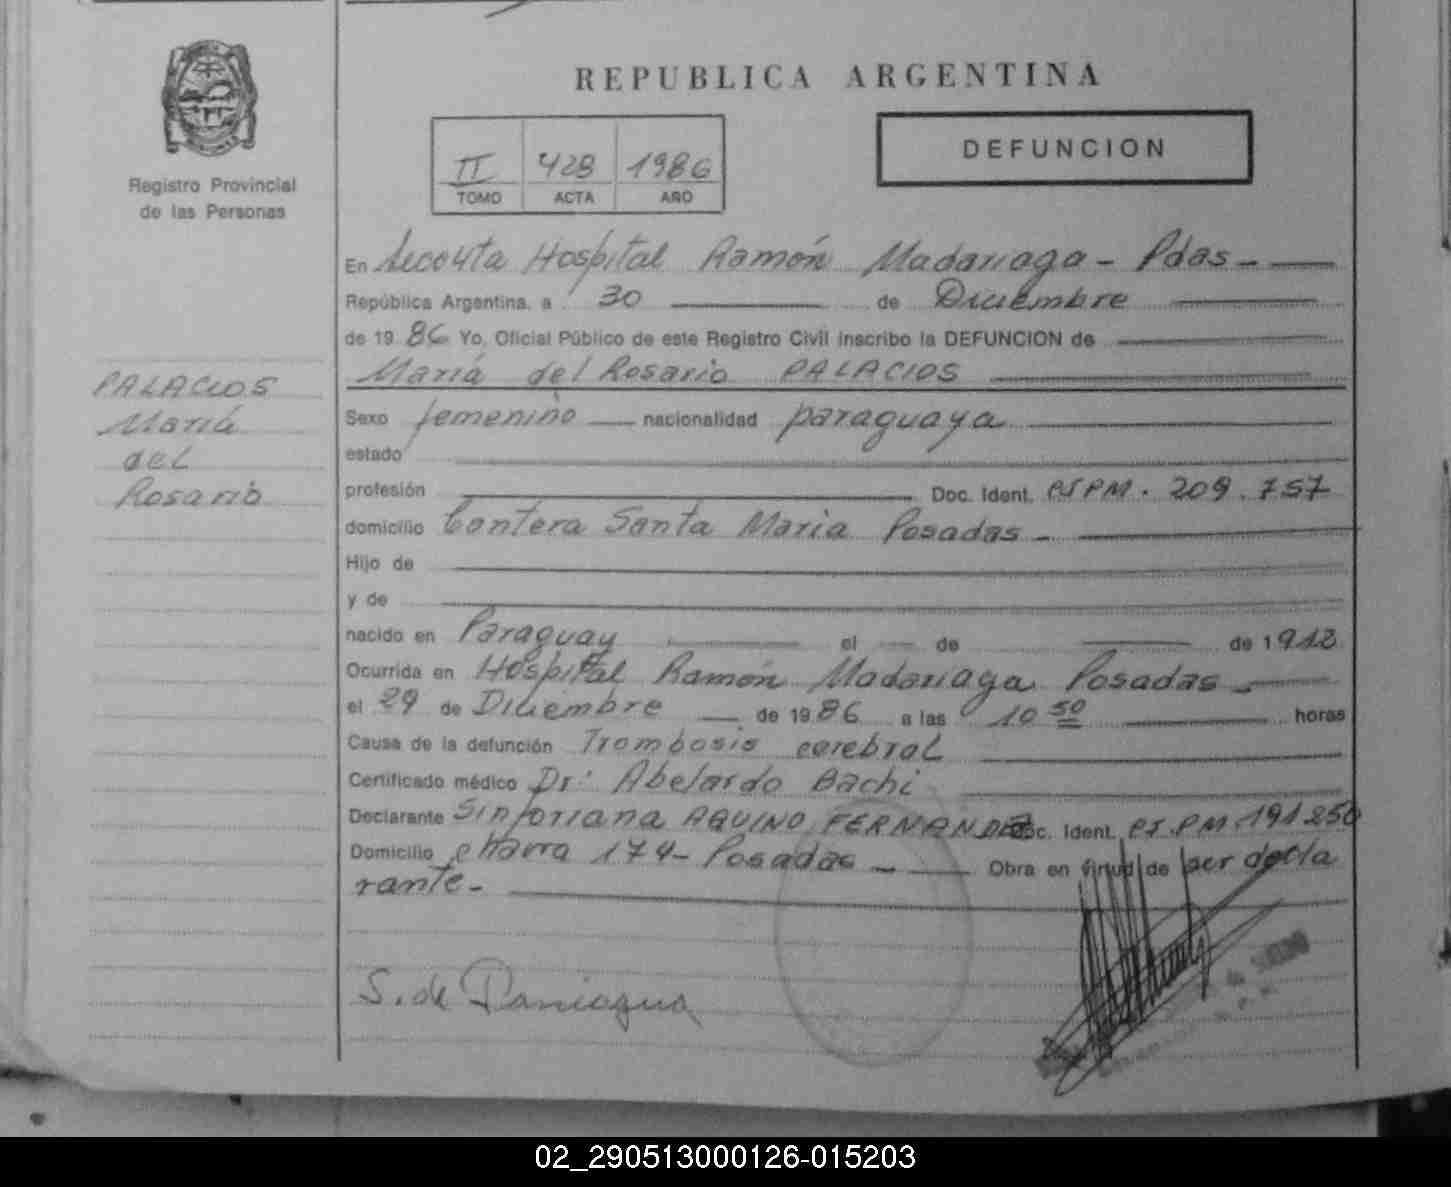 REPUBLICA ARGENTINA
DEFUNCION
II 428 1986
TOMO ACTA AÑO
Registro Provincial
de las Personas
En Hospital Ramón Madariaga - Pdas -
República Argentina, a 30 de Diciembre
de 1986 Yo, Oficial Público de este Registro Civil inscribo la DEFUNCION de
María del Rosario PALACIOS
PALACIOS
María
del
Rosario
Sexo femenino nacionalidad paraguaya
estado
profesión Doc. Ident. PJPM. 209.757
domicilio Cantera Santa Maria Posadas -
Hijo de
y de
nacido en Paraguay el de de 1912
Ocurrida en Hospital Ramón Madariaga Posadas -
el 29 de Diciembre de 1986 a las 10 50 horas
Causa de la defunción Trombosis cerebral
Certificado médico Dr: Abelardo Bachi
Declarante Sinforiana AQUINO FERNANDEZ Doc. Ident. PJ.PM.191250
Domicilio 174- Posadas - Obra en virtud de ser decla
rante -
S. de Paniagua
02_290513000126-015203